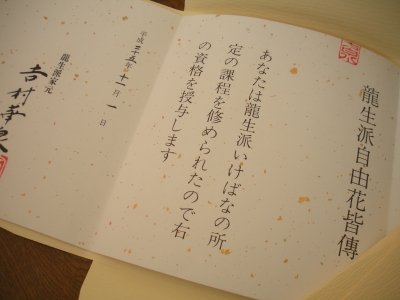 龍生派自由花皆傳
あなたは龍生派いけばなの所
定の課程を修められたので右
の資格を授与します
平成二十五年十一月一日
龍生派家元
吉村華泉